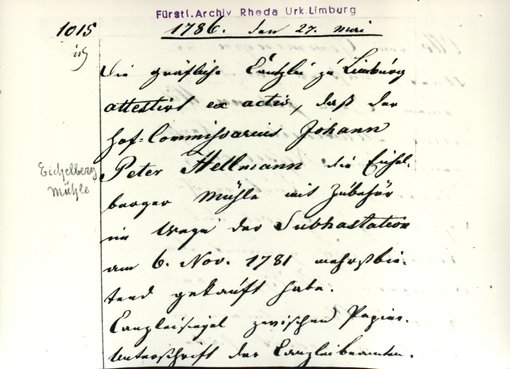 Fürstl. Archiv Rheda Urk. Limburg
1015
1786. den 27. Mai
Die gräfliche Canzlei zu Limburg
attestirt ex actis, daß der
Hof-Commissarius Johann
Peter Hellmann die Eichel-
berger Mühle mit Zubehör
im Wege der Subhastation
am 6. Nov. 1781 mehrstbie-
tend gekauft habe.
Canzleisiegel zwischen Papier.
Unterschrift der Canzleibeamten.
Eichelberg
Mühle